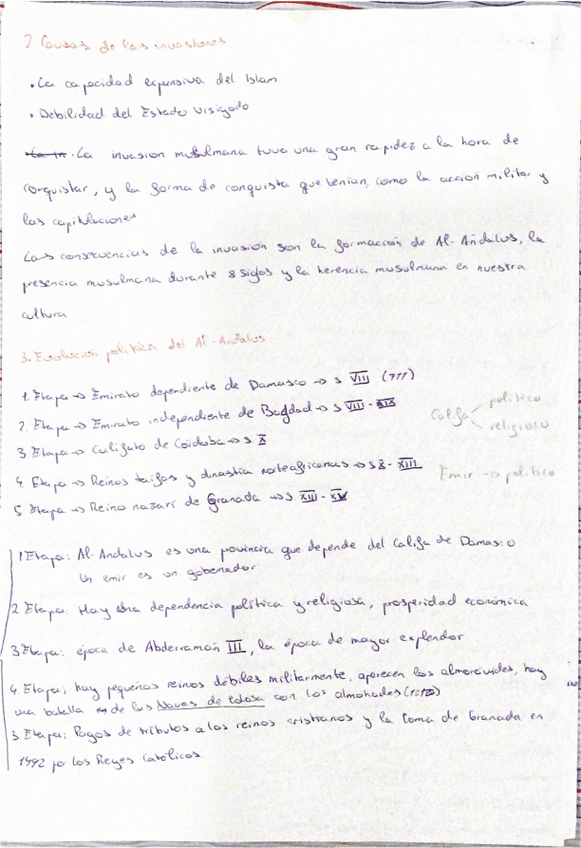 2. Causas de las invasiones
• La capacidad expansiva del Islam
• Debilidad del Estado Visigodo
La in. La invasion musulmana tuvo una gran rapidez a la hora de
conquistar, y la forma de conquista que tenian, como la acción militar y
las capitulaciones
Las consecuencias de la invasión son la formación de Al-Andalus, la
presencia musulmana durante 8 siglos y la herencia musulmana en nuestra
cultura
3. Evolución politica del Al-Andalus
1. Etapa → Emirato dependiente de Damasco → s VIII (711)
2. Etapa → Emirato independiente de Bagdad → s VIII - XIX
3 Etapa → Califato de Córdoba → s X
4 Etapa → Reinos taifas y dinastia norteafricanas → s X - XIII
5 Etapa → Reino nazarí de Granada → s XIII - XV
Califa politico
religioso
Emir → politico
1 Etapa: Al-Andalus es una provincia que depende del Califa de Damasco
Un emir es un gobenador
2 Etapa: Hay una dependencia política y religiosa, prosperidad económica
3 Etapa: época de Abderramán III, la época de mayor explendor
4 Etapa: hay pequeños reinos débiles militarmente, aparecen los almorávides, hay
una batalla de las Navas de tolosa con los almohades (1212)
5 Etapa: Pagos de tributos a los reinos cristianos y la toma de Granada en
1492 po los Reyes Católicos.